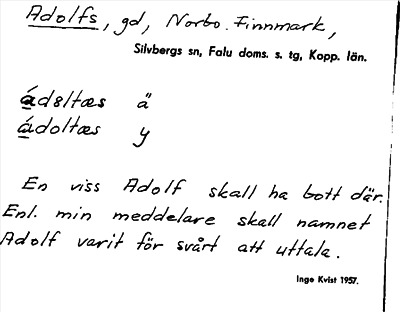 Adolfs, gd, Norbo. Finnmark,
Silvbergs sn, Falu doms. s. tg, Kopp. län.
ádɵltæs ä
ádoltæs y
En viss Adolf skall ha bott där.
Enl. min meddelare skall namnet
Adolf varit för svårt att uttala.
Inge Kvist 1957.